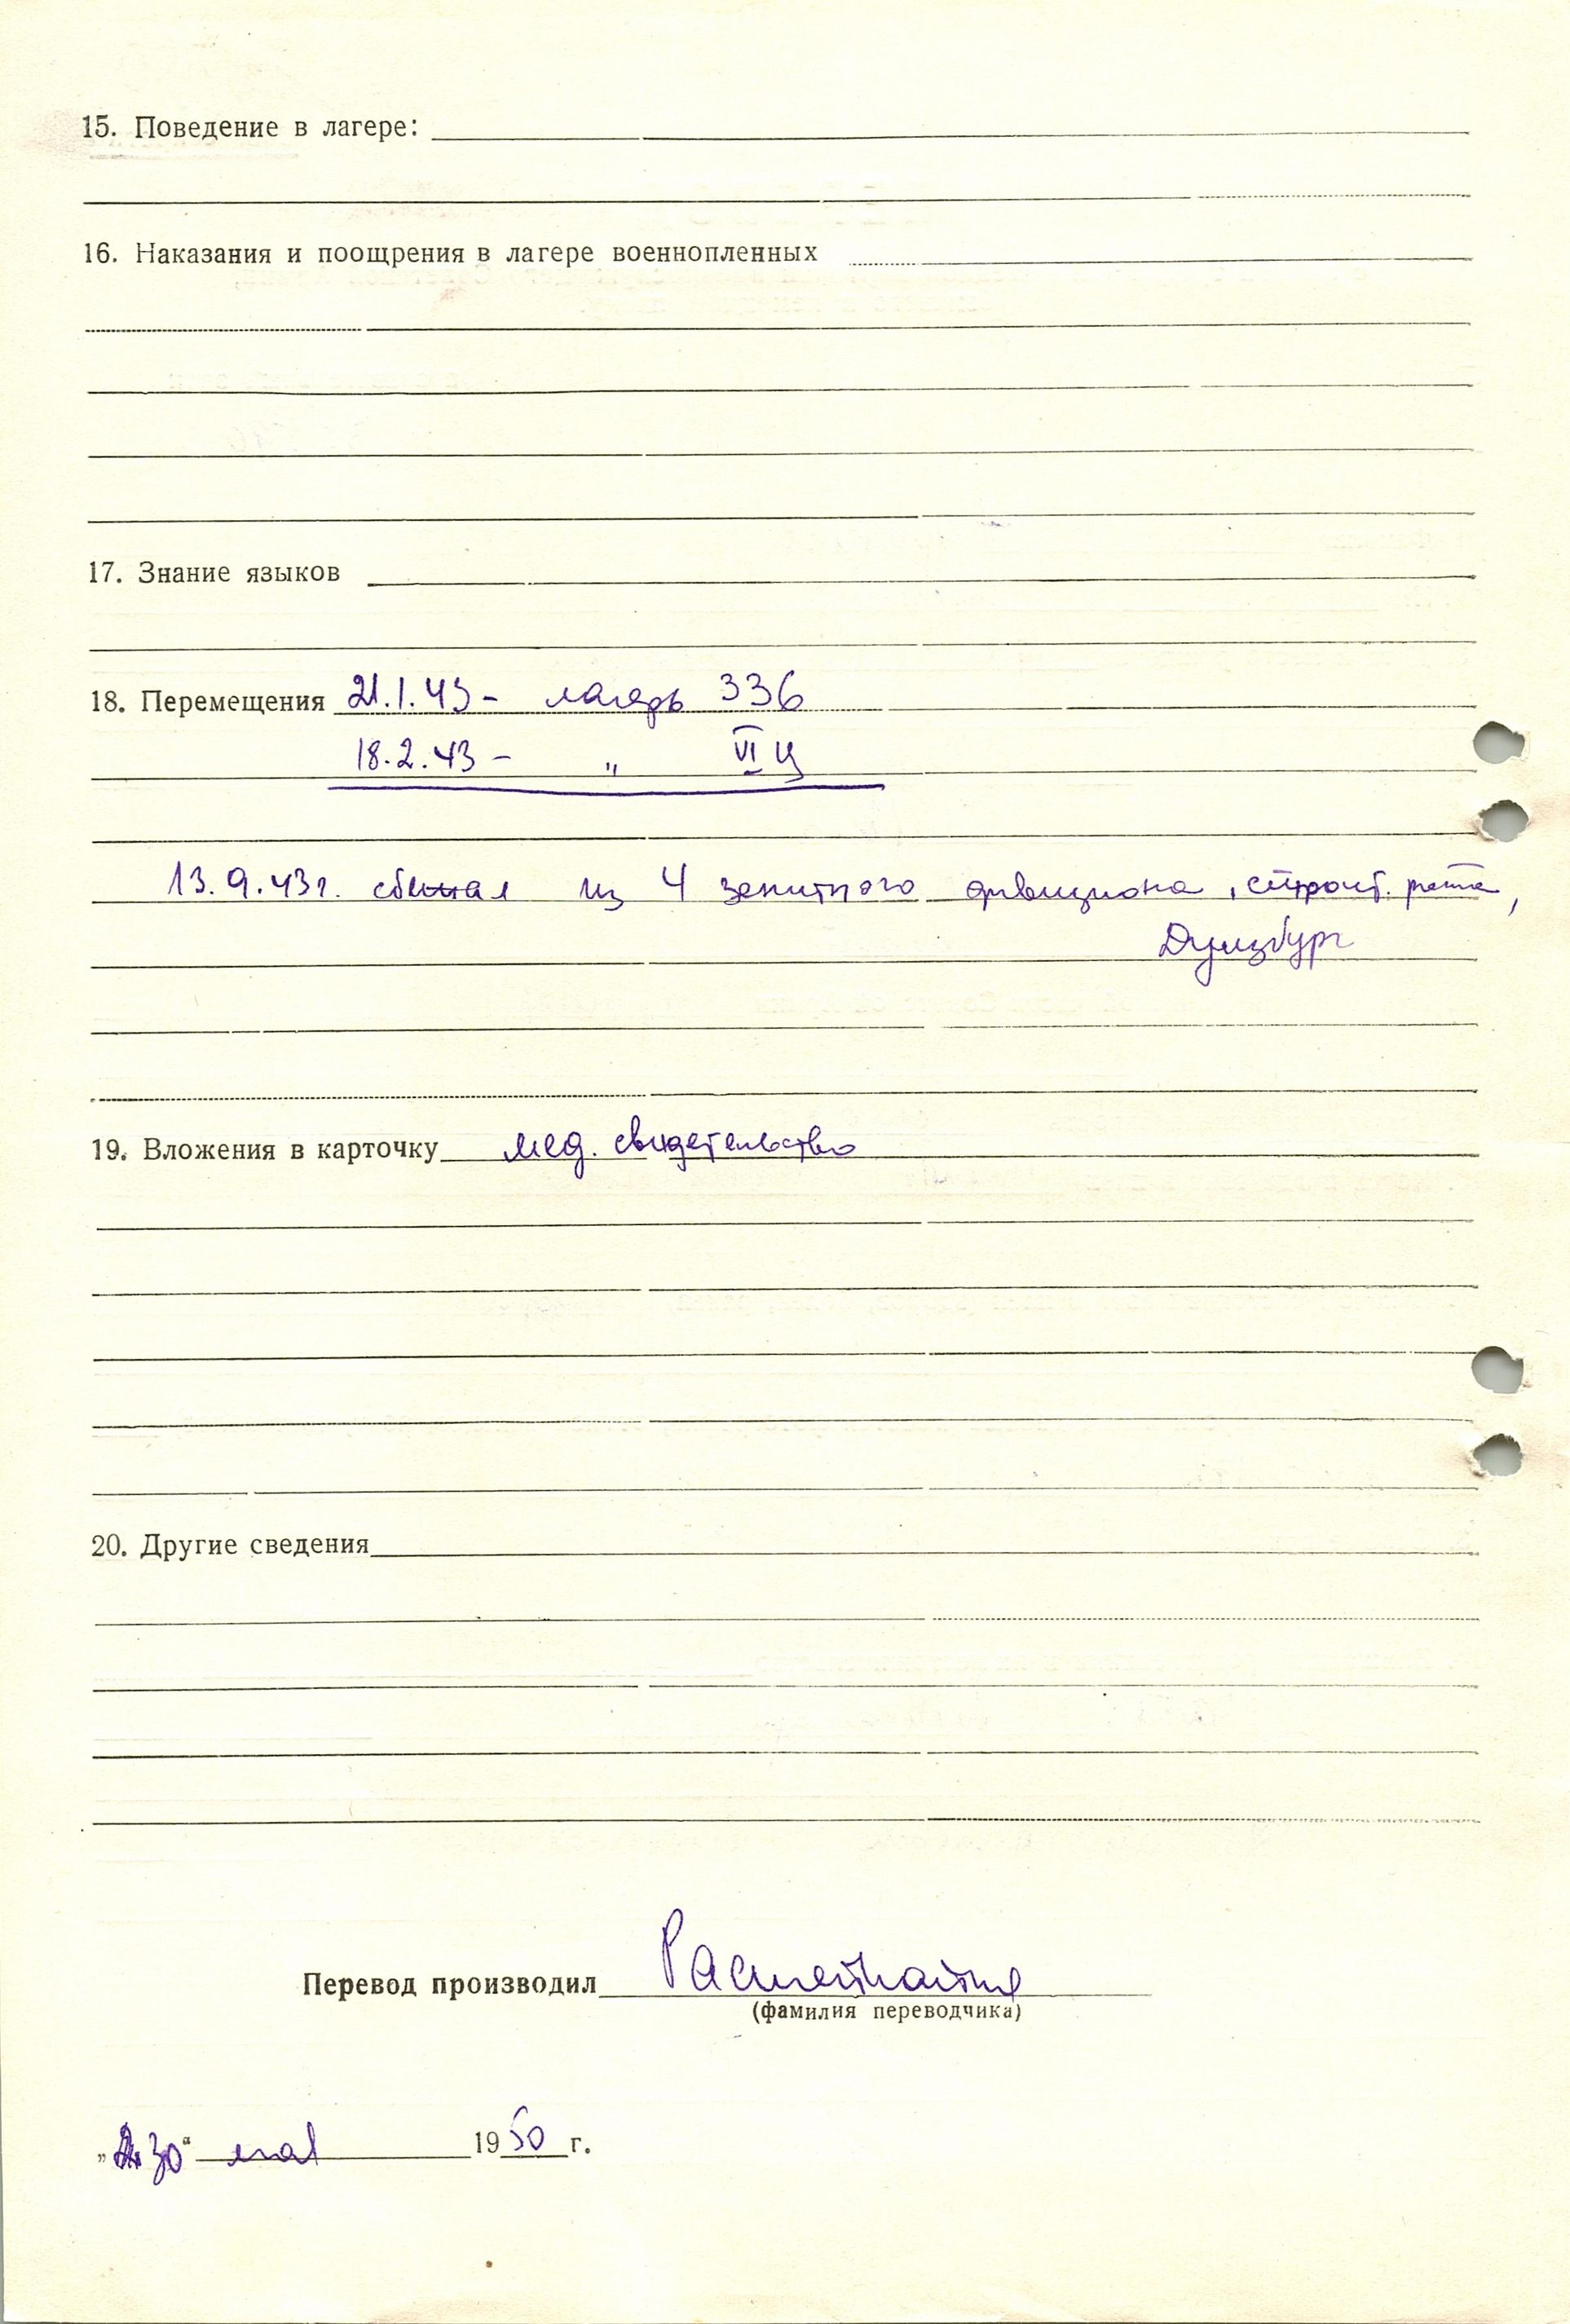 15. Поведение в лагере:
16. Наказания и поощрения в лагере военнопленных
17. Знание языков
18. Перемещения 21.1.43 - лагерь 336
18.2.43 - " VI Ц
13.9.43г. сбежал из 4 зенитного дивизиона, строит. рота,
Дуизбург
19. Вложения в карточку мед. свидетельство
20. Другие сведения
Перевод производил
(фамилия переводчика)
„30“ мая 1950 г.